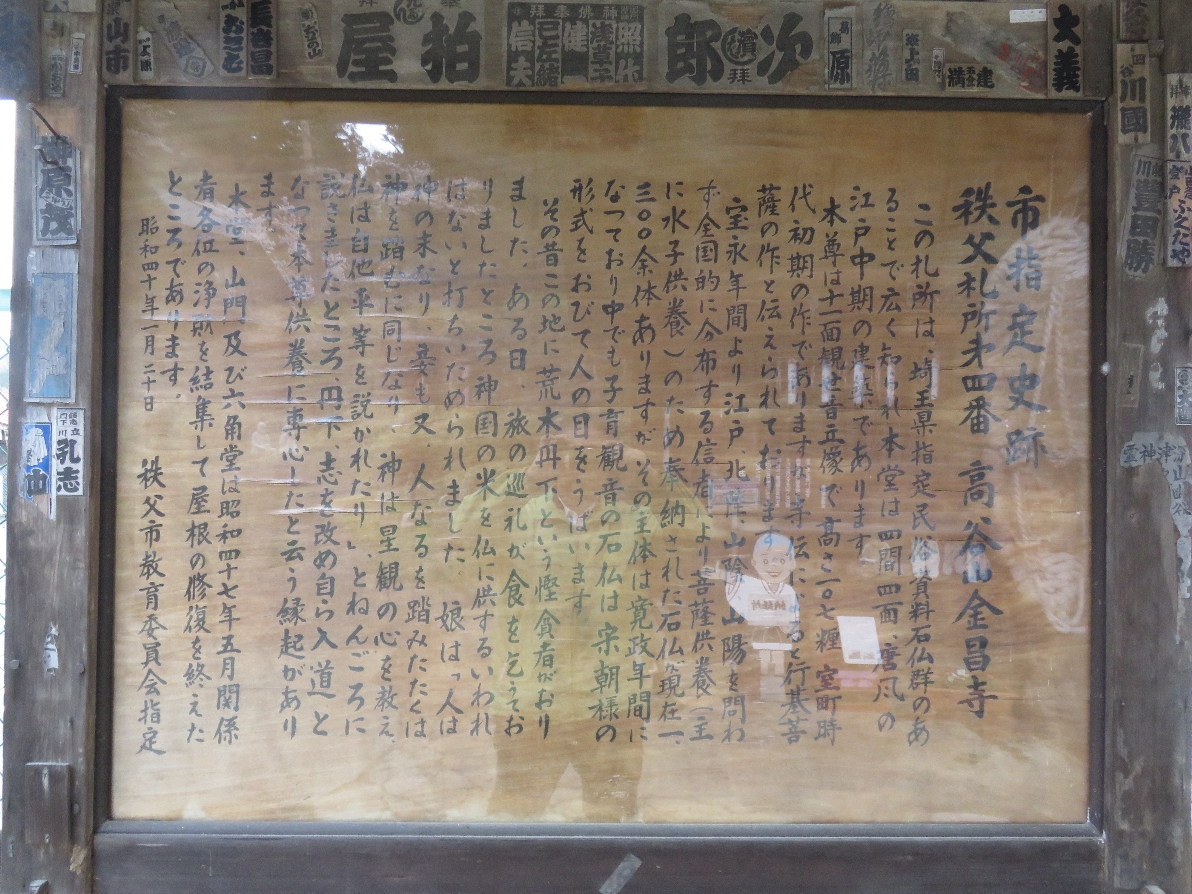 市指定史跡
秩父札所第四番 高谷山金昌寺
この札所は、埼玉県指定民俗資料石仏群のあ
ることで広く知られ本堂は四間四面、唐風の
江戸中期の建築であります
本尊は十一面観世音立像で高さ一〇七糎 室町時
代初期の作でありますが寺伝によると行基菩
薩の作と伝えられております
宝永年間より江戸、北陸、山陰、山陽を問わ
ず全国的に分布する信者により菩薩供養(主
に水子供養)のため奉納された石仏が現在一、
三〇〇余体ありますが、その主体は寛政年間に
なっており中でも子育観音の石仏は宋朝様の
形式をおびて人の目をうばいます
その昔この地に荒木丹下という慳貪者がおり
ました、ある日、旅の巡礼が食を乞うてお
りましたところ神国の米を仏に供するいわれ
はないと打ちいためられました 娘は「人は
神の末なり、妾も又、人なるを踏みたたくは
神を踏むに同じなり 神は星観の心を教え、
仏は自他平等を説かれたり」とねんごろに
説きましたところ、丹下、志を改め自ら入道と
なって本尊供養に専心したと云う縁起があり
ます
本堂、山門、及び六角堂は昭和四十七年五月関係
者各位の浄財を結集して屋根の修復を終えた
ところであります。
昭和四十年一月二十日 秩父市教育委員会指定
屋柏
郎次
拝
信夫
健
照生
原
大義
満
川國
豊田勝
榊原茂
乳志
山市
ふくだや